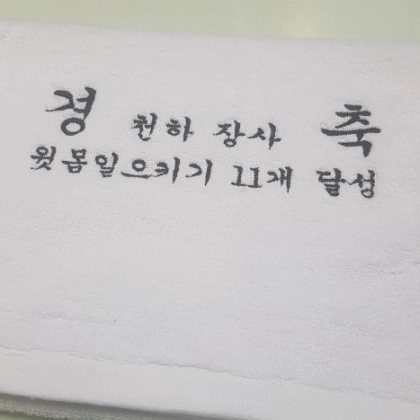 경 천하 장사 축
윗몸일으키기 11개 달성